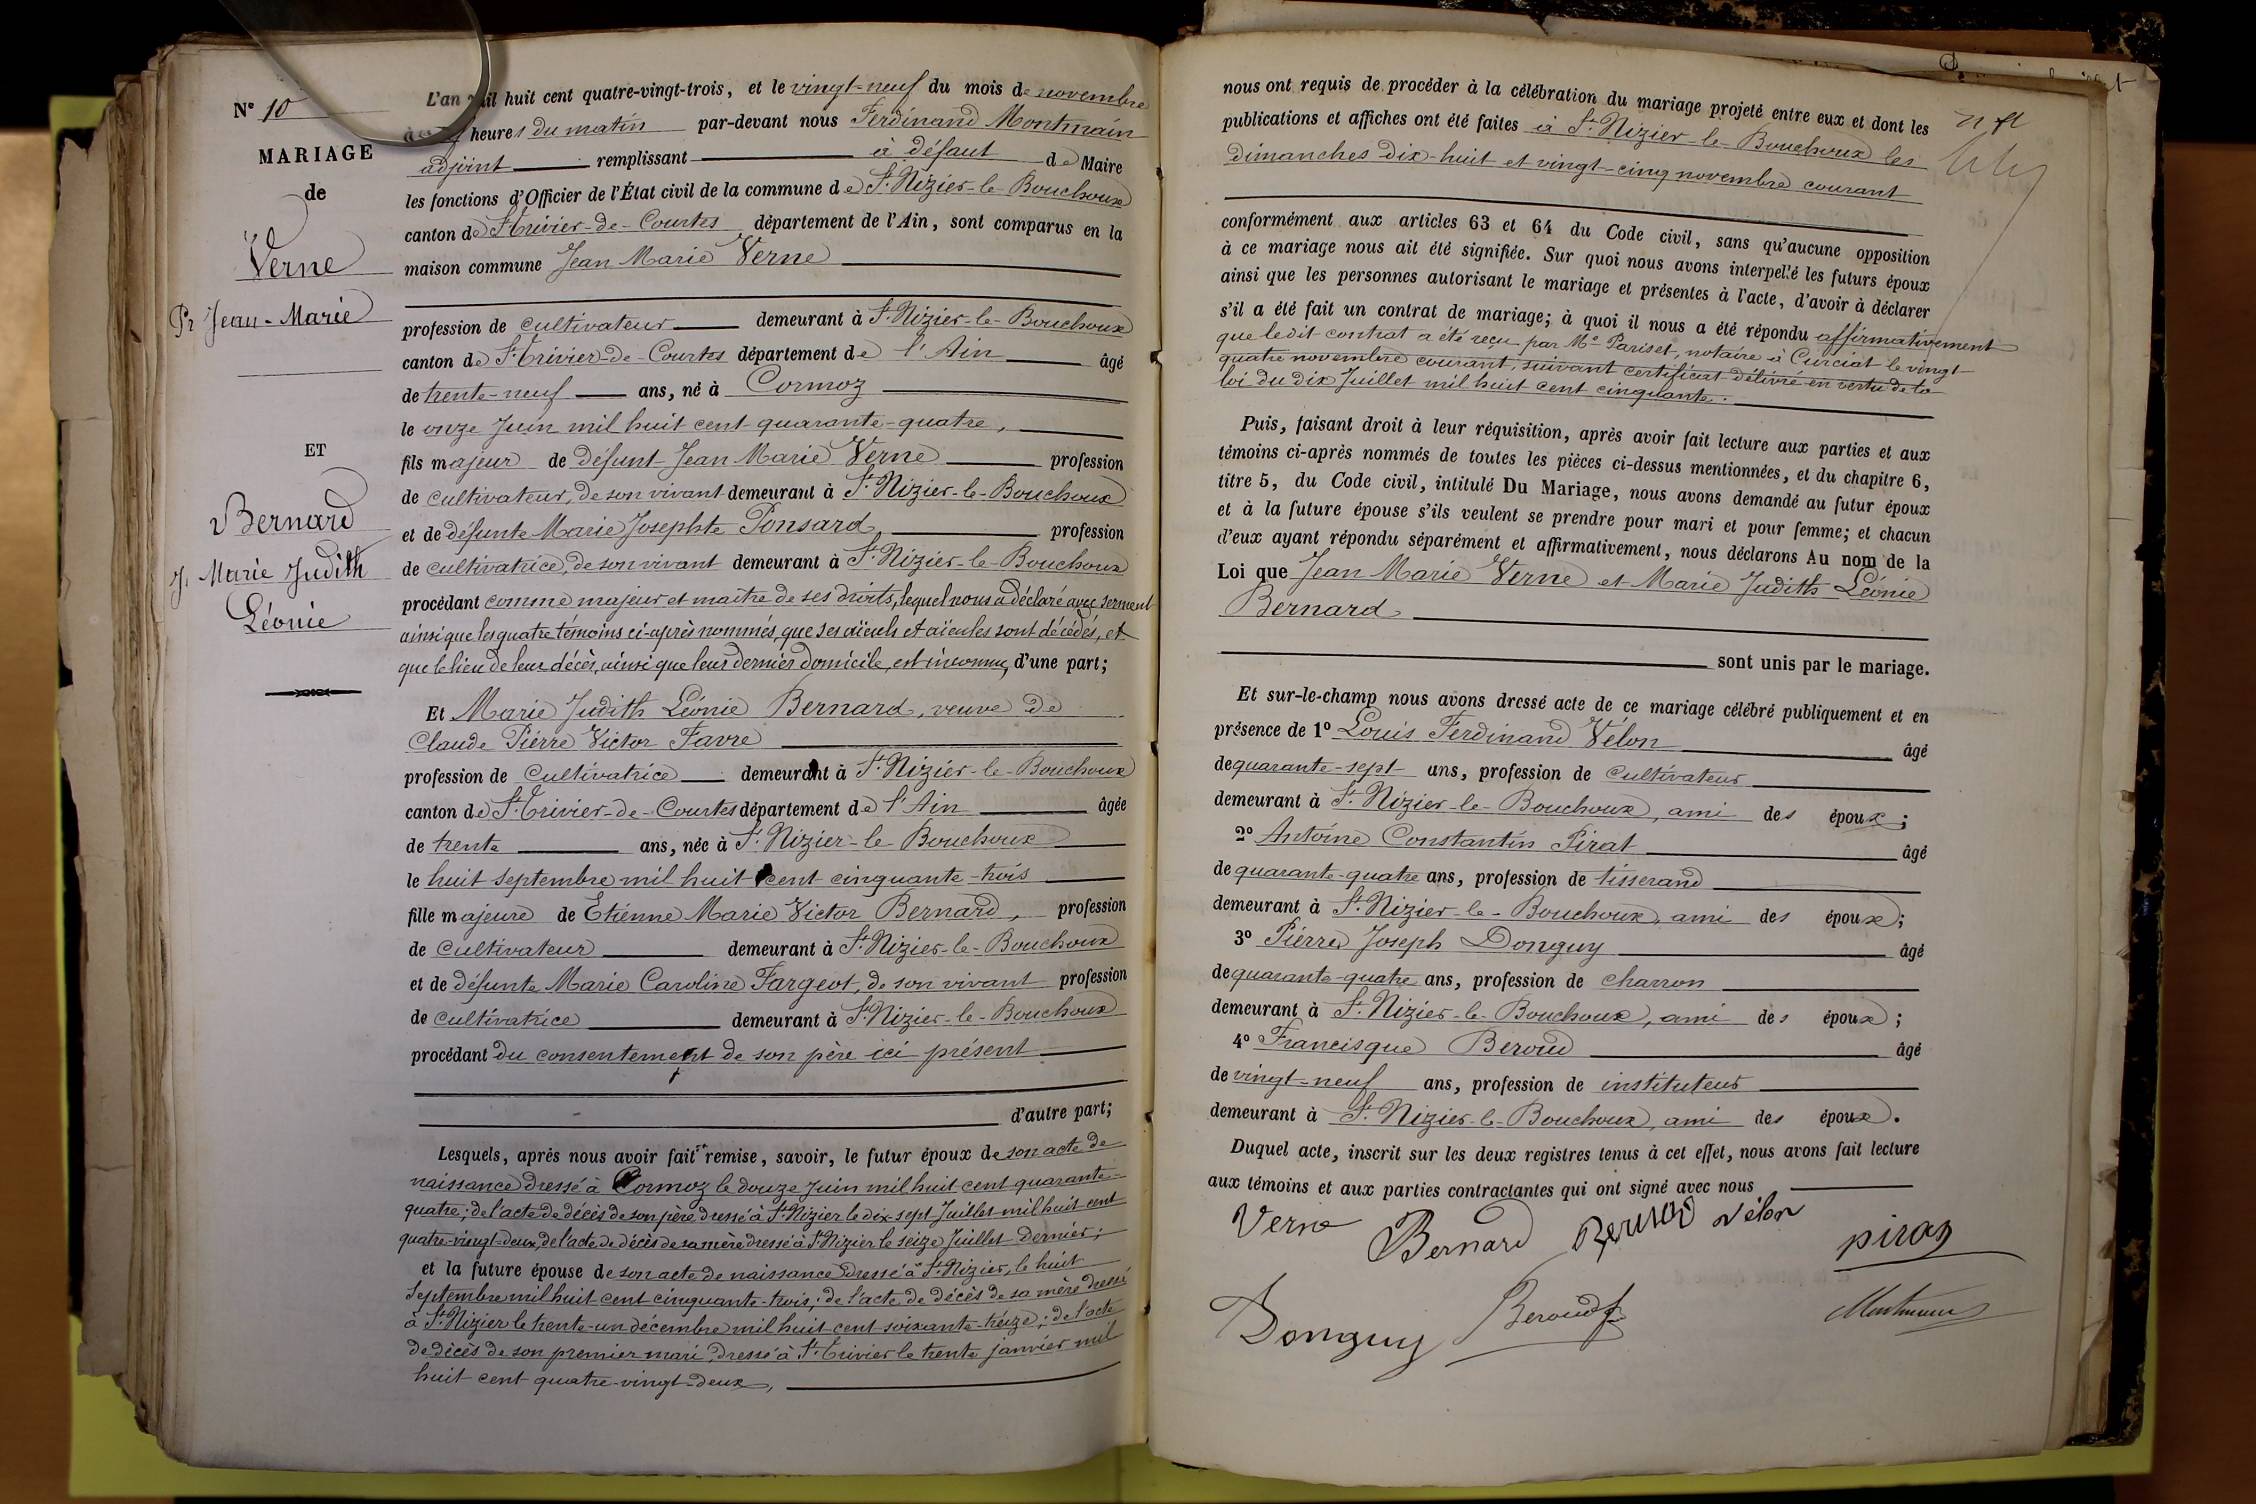 N° 10
MARIAGE
de
Verne
Jean-Marie
ET
Bernard
Marie Judith
Léonie
L'an mil huit cent quatre-vingt-trois, et le vingt-neuf du mois de novembre
heures du matin par-devant nous Ferdinand Montmain
adjoint remplissant à défaut de Maire
les fonctions d'Officier de l'État civil de la commune de St Nizier-le-Bouchoux
canton de St Trivier-de-Courtes département de l'Ain, sont comparus en la
maison commune Jean Marie Verne
profession de cultivateur demeurant à St Nizier-le-Bouchoux
canton de St Trivier-de-Courtes département de l'Ain âgé
de trente-neuf ans, né à Cormoz
le onze Juin mil huit cent quarante-quatre,
fils majeur de défunt Jean Marie Verne profession
de cultivateur, de son vivant demeurant à St Nizier-le-Bouchoux
et de défunte Marie Josephte Ponsard profession
de cultivatrice, de son vivant demeurant à St Nizier-le-Bouchoux
procédant comme majeur et maître de ses droits, lequel nous a déclaré avec serment
ainsi que les quatre témoins ci-après nommés, que ses aïeuls et aïeules sont décédés, et
que le lieu de leur décès, ainsi que leur dernier domicile, est inconnu, d'une part;
Et Marie Judith Léonie Bernard, veuve de
Claude Pierre Victor Favre
profession de Cultivatrice demeurant à St Nizier-le-Bouchoux
canton de St Trivier-de-Courtes département de l'Ain âgée
de trente ans, née à St Nizier-le-Bouchoux
le huit Septembre mil huit cent cinquante-trois
fille majeure de Etienne Marie Victor Bernard, profession
de cultivateur demeurant à St Nizier-le-Bouchoux
et de défunte Marie Caroline Fargeot, de son vivant profession
de cultivatrice demeurant à St Nizier-le-Bouchoux
procédant du consentement de son père ici présent
d'autre part;
Lesquels, après nous avoir fait remise, savoir, le futur époux de son acte de
naissance dressé à Cormoz le douze Juin mil huit cent quarante-
quatre; de l'acte de décès de son père dressé à St Nizier le dix-sept Juillet mil huit cent
quatre-vingt-deux, de l'acte de décès de sa mère dressé à St Nizier le seize Juillet dernier;
et la future épouse de son acte de naissance dressé à St Nizier, le huit
Septembre mil huit cent cinquante-trois; de l'acte de décès de sa mère dressé
à St Nizier le trente-un décembre mil huit cent soixante-treize; de l'acte
de décès de son premier mari, dressé à St Trivier le trente janvier mil
huit cent quatre-vingt-deux,
nous ont requis de procéder à la célébration du mariage projeté entre eux et dont les
publications et affiches ont été faites à St Nizier-le-Bouchoux les
dimanches dix-huit et vingt-cinq novembre courant
conformément aux articles 63 et 64 du Code civil, sans qu'aucune opposition
à ce mariage nous ait été signifiée. Sur quoi nous avons interpellé les futurs époux
ainsi que les personnes autorisant le mariage et présentes à l'acte, d'avoir à déclarer
s'il a été fait un contrat de mariage; à quoi il nous a été répondu affirmativement
que ledit contrat a été reçu par Me Pariset, notaire à Curciat le vingt-
quatre novembre courant, suivant certificat délivré en vertu de la
loi du dix Juillet mil huit cent cinquante.
Puis, faisant droit à leur réquisition, après avoir fait lecture aux parties et aux
témoins ci-après nommés de toutes les pièces ci-dessus mentionnées, et du chapitre 6,
titre 5, du Code civil, intitulé Du Mariage, nous avons demandé au futur époux
et à la future épouse s'ils veulent se prendre pour mari et pour femme; et chacun
d'eux ayant répondu séparément et affirmativement, nous déclarons Au nom de la
Loi que Jean Marie Verne et Marie Judith Léonie
Bernard
sont unis par le mariage.
Et sur-le-champ nous avons dressé acte de ce mariage célébré publiquement et en
présence de 1° Louis Ferdinand Vélon âgé
de quarante-sept ans, profession de cultivateur
demeurant à St Nizier-le-Bouchoux, ami des époux;
2° Antoine Constantin Pirat âgé
de quarante-quatre ans, profession de tisserand
demeurant à St Nizier-le-Bouchoux, ami des époux;
3° Pierre Joseph Donguy âgé
de quarante-quatre ans, profession de charron
demeurant à St Nizier-le-Bouchoux, ami des époux;
4° Francisque Beroud âgé
de vingt-neuf ans, profession de instituteur
demeurant à St Nizier-le-Bouchoux, ami des époux.
Duquel acte, inscrit sur les deux registres tenus à cet effet, nous avons fait lecture
aux témoins et aux parties contractantes qui ont signé avec nous
Verne Bernard Bernard vélon
piraz
Donguy Beroud f Montmain